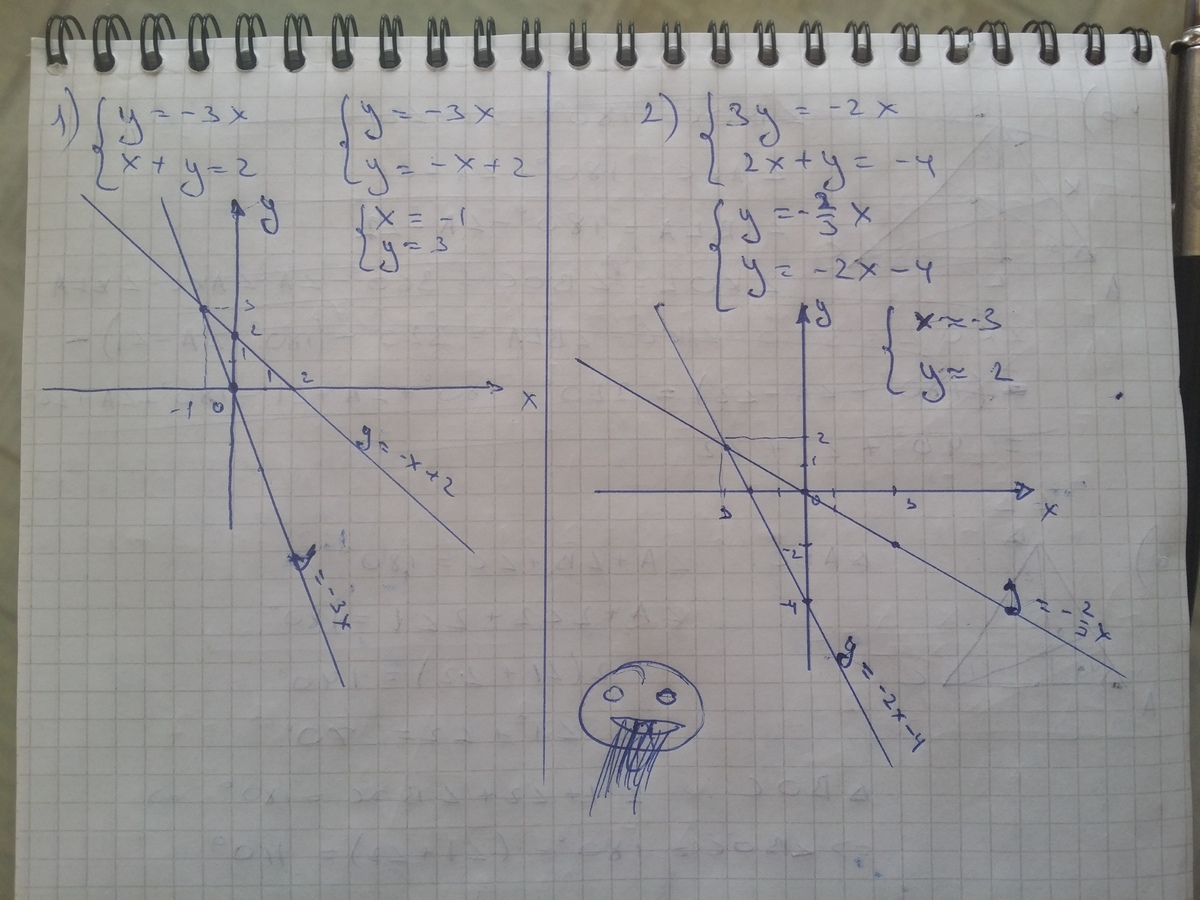 1) { y = -3x
{ x + y = 2
{ y = -3x
{ y = -x + 2
{ x = -1
{ y = 3
y
3
2
1
-1 0 1 2 x
y = -x + 2
y = -3x
2) { 3y = -2x
{ 2x + y = -4
{ y = -2/3 x
{ y = -2x - 4
{ x ≈ -3
{ y ≈ 2
y
2
1
0 3 x
-2
-4
y = -2/3 x
y = -2x - 4